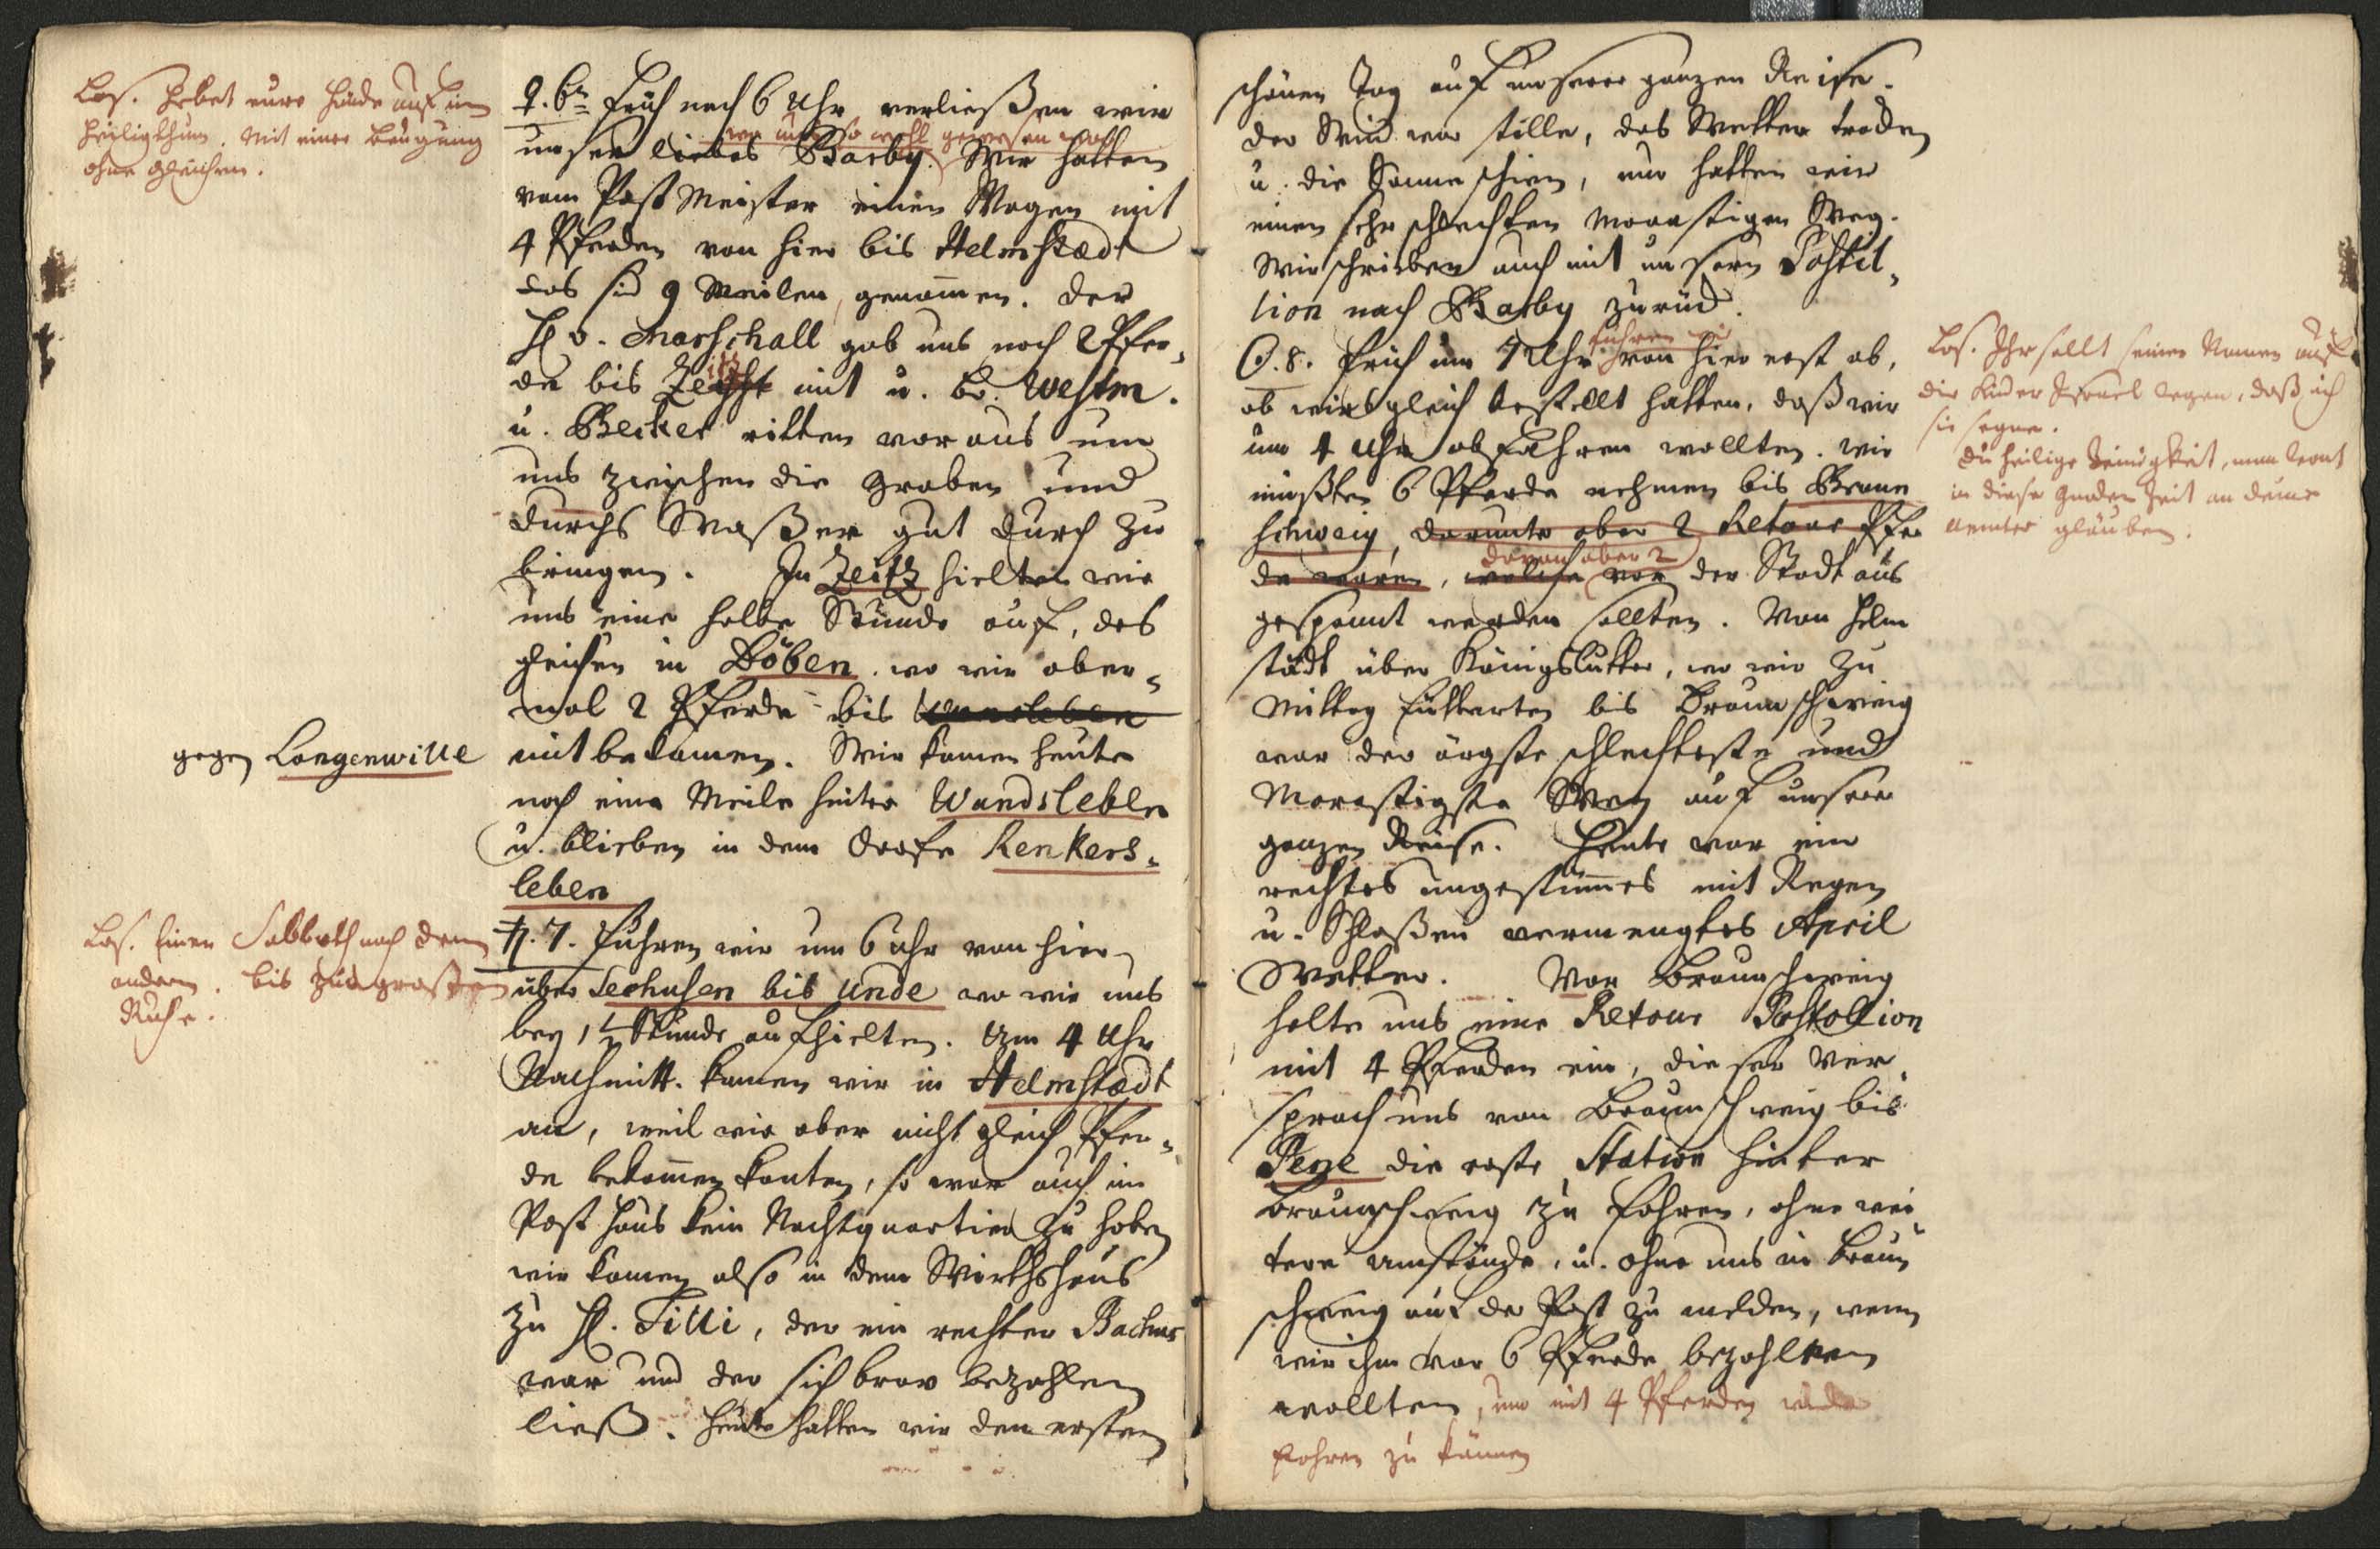 Los. Hebet eure Hände auf im
Heiligthum. Mit einer Beugung
ohne gleichen.
♀. 6ten Früh nach 6 Uhr verließen wir
wo uns so wohl gewesen war
unser liebes Barby. Wir hatten
vom Post Meister einen Wagen mit
4 Pferden von hier bis Helmstædt
das sind 9 Meilen, genommen. Der
H v. Marschall gab uns noch 2 Pfer-
de bis mit u. Br. Westm.
u. Becker ritten voraus um
uns zwischen die Graben und
durchs Waßer gut durch zu
bringen. In Zeitz hielten wir
uns eine halbe Stunde auf, des
gleichen in Böben. wo wir aber-
mal 2 Pferde bis
gegen Langenwille
mit bekamen. Wir kamen heute
noch eine Meile hinter Wandsleben
u. blieben in dem Dorfe Renkers-
leben
Los. Einen Sabbath nach dem
andern. bis zur großen
Ruhe.
♄. 7. Fuhren wir um 6 Uhr von hier
über Seehusen bis Unde wo wir uns
bey 1½ Stunde aufhielten. Um 4 Uhr
Nachmitt. kamen wir in Helmstædt
an, weil wir aber nicht gleich Pfer-
de bekommen konten, so war auch im
Post Haus kein Nachtquartier zu haben
wir kamen also in dem Wirthshaus
zu H. Tilli, der ein rechter Bachus
war und der sich brav bezahlen
ließ. Heute hatten wir den ersten
schönen Tag auf unserer ganzen Reise.
der Wind war stille, das Wetter troken
u. die Sonne schien, nur hatten wir
einen sehr schlechten morastigen Weg.
Wir schrieben auch mit unsern Postil-
lion nach Barby zurück.
fuhren wir
☉. 8. Früh um 7 Uhr von hier erst ab,
ob wirs gleich bestellt hatten, daß wir
um 4 Uhr abfahren wollten. wir
mußten 6 Pferde nehmen bis Braun
schweig, darunter aber 2 Retour Pfer
davon aber 2
de waren, welche vor der Stadt aus
gespannt werden sollten. Von Helm
städt über Königslutter, wo wir zu
Mittag futterten bis Braunschweig
war der ärgste schlechteste und
Morastigste Weg auf unserer
ganzen Reise. Heute war ein
rechtes ungestümmes mit Regen
u. Schloßen vermengtes April
Wetter. Vor Braunschweig
holte uns eine Retour Postollion
mit 4 Pferden ein, dieser ver-
sprach uns von Braunschweig bis
Peyne die erste Station hinter
Braunschweig zu fahren, ohne wei
tere Umstände, u. ohne uns in Braun
schweig auf der Post zu melden, wenn
wir ihm vor 6 Pferde bezahlen
wollten, um mit 4 Pferden
fahren zu können
Los. Ihr sollt seinen Namen auf
die Kinder Israel legen, daß ich
sie segne.
Du heilige Dreinigkeit, man lernt
in dieser Gnaden Zeit an deine
Aemter gläuben.